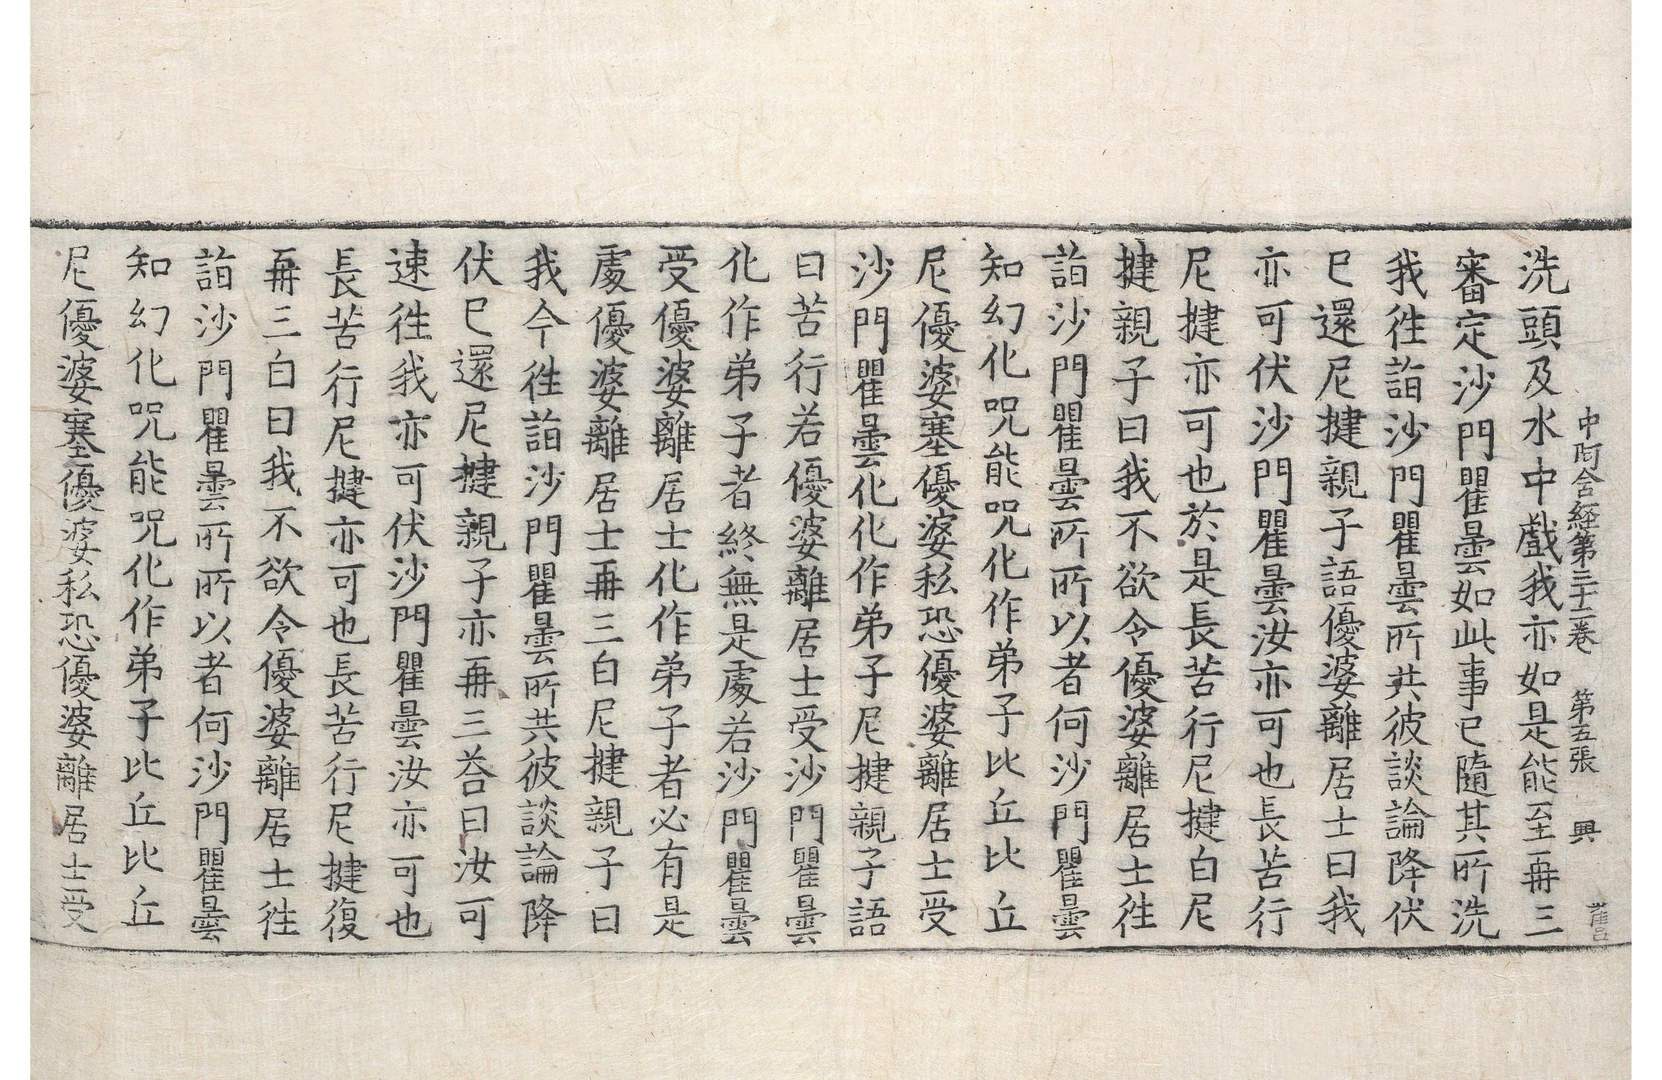 中阿含経第三十二卷 第五張 興
洗頭及水中戲我亦如是能至再三
審定沙門瞿曇如此事已隨其所洗
我徃詣沙門瞿曇所共彼談論降伏
已還尼揵親子語優婆離居士曰我
亦可伏沙門瞿曇汝亦可也長苦行
尼揵亦可也於是長苦行尼揵白尼
揵親子曰我不欲令優婆離居士徃
詣沙門瞿曇所所以者何沙門瞿曇
知幻化呪能呪化作弟子比丘比丘
尼優婆塞優婆私恐優婆離居士受
沙門瞿曇化化作弟子尼揵親子語
曰苦行若優婆離居士受沙門瞿曇
化作弟子者終無是處若沙門瞿曇
受優婆離居士化作弟子者必有是
處優婆離居士再三白尼揵親子曰
我今徃詣沙門瞿曇所共彼談論降
伏已還尼揵親子亦再三荅曰汝可
速徃我亦可伏沙門瞿曇汝亦可也
長苦行尼揵亦可也長苦行尼揵復
再三白曰我不欲令優婆離居士徃
詣沙門瞿曇所所以者何沙門瞿曇
知幻化呪能呪化作弟子比丘比丘
尼優婆塞優婆私恐優婆離居士受